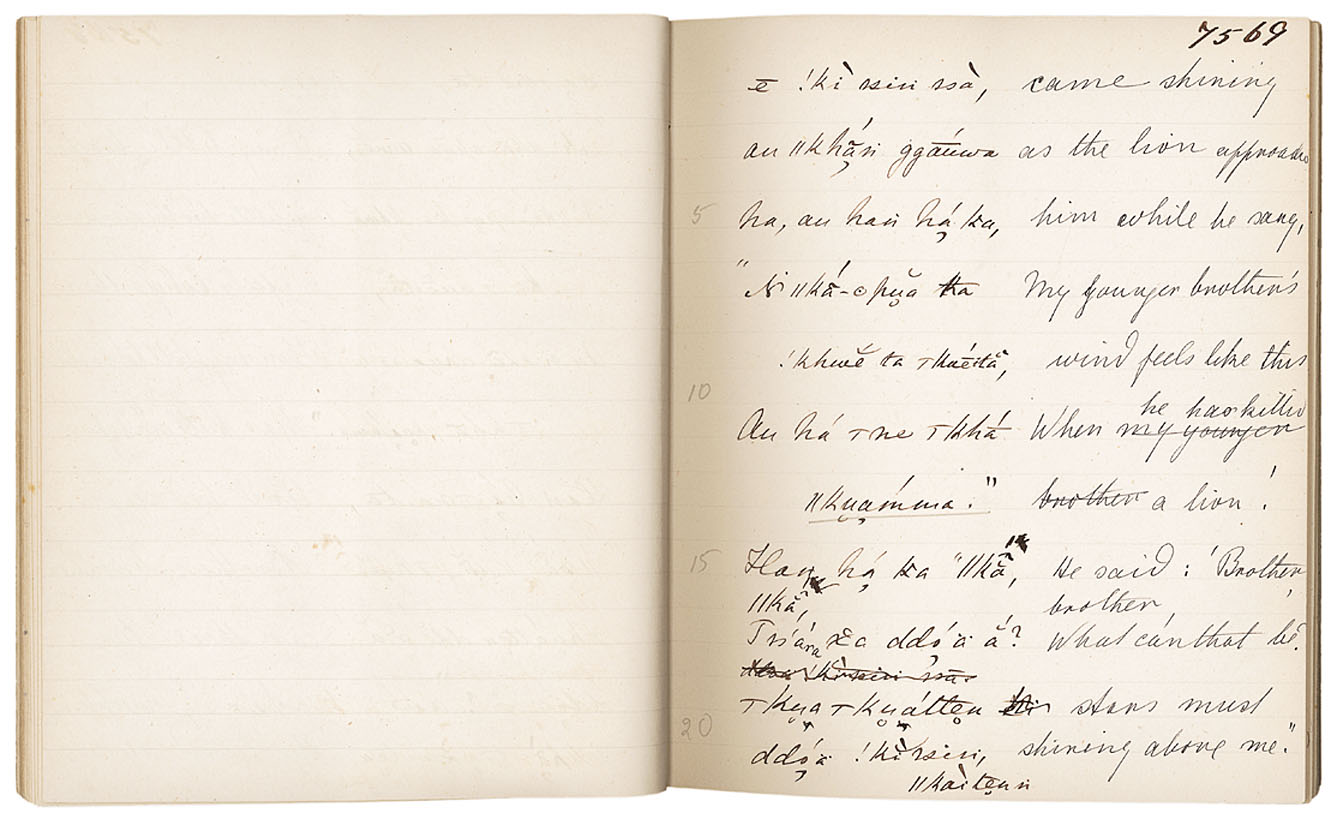 7569
ē !kì ssin ssà, came shining
au ǁkhā́ŋ ggáuwa as the lion approaches
5 ha, au haŋ há ka, him while he sang,
"N ǁká-ŏpŭa ka My younger brother's
!khwĕ ta ⊤kuéïtă, wind feels like this
10
Au há ⊤ne ⊤khá When he has killed my younger
ǁkuámma." brother a lion!
15 Haŋ há ka "ǁkă, He said: 'Brother
ǁkă, brother,
Tsá́ra xa ddóä ă? What can that be?
⊤kua⊤kuátteŋ stars must
20 ddóä !kì ssin, shining above me."
ǁkaìteŋ